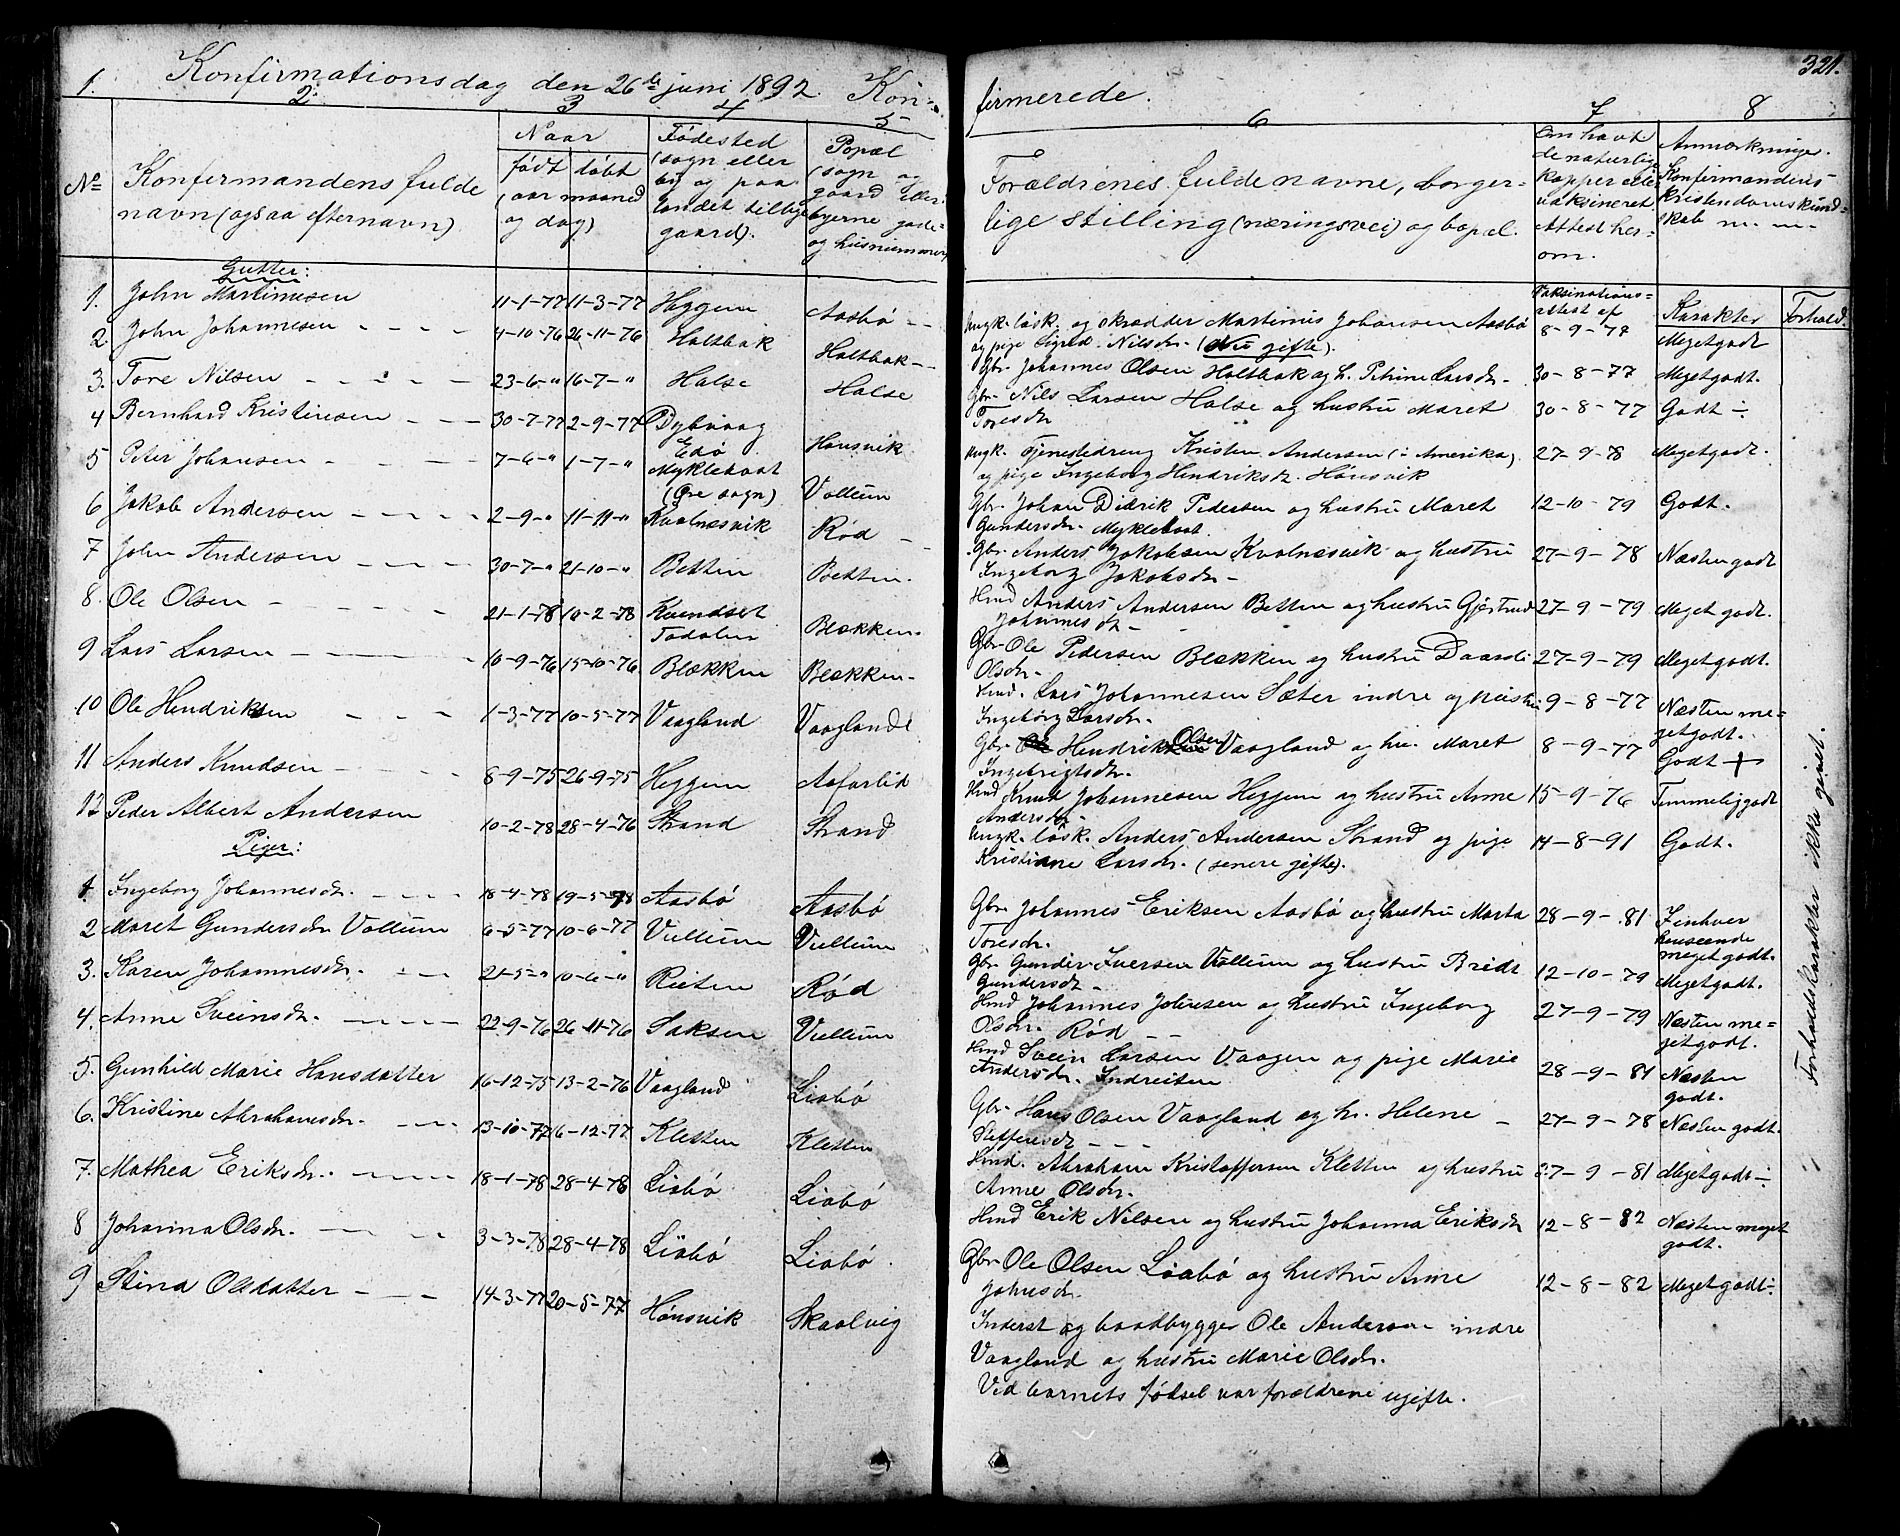 1. Konfirmationsdag den 26de juni 1892. Kon-
2. 3 4 5
No Konfirmandens fulde navn (ogsaa efternavn)
Naar
født døbt
(aar maaned og dag)
Fødested (sogn eller by og paa landet tillige gaard).
Popæl (sogn og gaard eller byerne gade- og husnummer)
Gutter:
1. John Martinusen 11-1-77 11-3-77 Heggem Aasbø
2 John Johannesen 4-10-76 26-11-76 Holtbak Holtbak
3. Tore Nilsen 23-6-" 16-7-" Halse Halse
4 Bernhard Kristinesen 30-7-77 2-9-77 Dybvaag Edø Hønsvik
5 Peter Johansen 7-6-" 1-7-" Myklebost (Øre sogn) Vollum
6 Jakob Andersen 2-9-" 11-11-" Kvalnæsvik Rød
7 John Andersen 30-7-" 21-10-" Betten Betten
8. Ole Olsen 21-1-78 10-2-78 Kvendset Todalen Blekken
9 Lars Larsen 10-9-76 15-10-76 Blækken Blekken
10 Ole Hendriksen 1-3-77 10-5-77 Vaagland Vaagland
11 Anders Knudsen 8-9-75 26-9-75 Heggem Aasarlid
12 Peder Albert Andersen 10-2-78 28-4-76 Strand Strand
Piger:
1. Ingeborg Johannesdr. 18-4-78 19-5-78 Aasbø Aasbø
2 Maret Gundersdr. Vollum 6-5-77 10-6-77 Vullum Vullum
3. Karen Johannesdr. 21-5-" 10-6-" Reiten Rød
4. Anne Sveinsdr. 22-9-76 26-11-76 Saksen Vullum
5. Gunhild Marie Hansdatter 16-12-75 13-2-76 Vaagland Liabø
6. Kristine Abrahamsdr. 13-10-77 6-12-77 Kletten Kletten
7. Mathea Eriksdr. 18-1-78 28-4-78 Liabø Liabø
8 Johanna Olsdr. 3-3-78 28-4-78 Liabø Liabø
9 Stina Olsdatter 14-3-77 20-5-77 Hønsvik Skaalvig
321.
firmerede.
6 7 8
Forældrenes fulde navne, borger-
lige stilling (næringsvei) og bopæl.
Om havt de naturlige kopper eller vaksineret Attest her- om.
Anmærkninger. Konfirmandens kristendomskund- skab m. m.
Vaksinations- attest af Karakter Forhold.
ungk. løsk. og skrædder Martinus Johansen Aasbø 8-9-78 Megetgodt
og pige Sigrid Nilsdr. (nu gifte).
Gbr. Johannes Olsen Holtbak og h. Petrine Larsdr. 30-8-77 Megetgodt.
Gbr. Nils Larsen Halse og hustru Maret 30-8-77 Godt ÷
Toresdr
ungk. Tjenestedreng Kristen Andersen (i Amerika) 27-9-78 Megetgodt.
og pige Ingeborg Hendriksdr. Hønsvik
Gbr. Johan Didrik Pedersen og hustru Maret 12-10-79 Godt.
Gundersdr. Myklebost
Gbr. Anders Jakobsen Kvalnæsvik og hustru 27-9-78 Næsten godt
Ingeborg Jakobsdr.
Hmd Anders Andersen Betten og hustru Gjertrud 27-9-79 Meget godt.
Johannesdr
Gbr. Ole Pedersen Blækken og hustru Daardi 27-9-79 Megetgodt.
Olsdr.
Hmd. Lars Johannesen Sæter indre og hustru 9-8-77 Næsten me-
Ingeborg Larsdr. getgodt.
Gbr. Hendrik Olsen Vaagland og hu. Maret 8-9-77 Godt +
Ingebrigtsdr.
Hmd Knut Johannesen Heggem og hustru Anne 15-9-76 Temmeliggodt
Andersdr
ungk. løsk. Anders Andersen Strand og pige 14-8-91 Godt.
Kristianne Larsdr. (senere gifte).
Gbr. Johannes Eriksen Aasbø og hustru Marta 28-9-81 I enhver henseende megetgodt.
Toresdr.
Gbr. Gunder Iversen Vullum og hustru Bridt 12-10-79 Megetgodt.
Gundersdr
Hmd Johannes Johnsen og hustru Ingeborg 27-9-79 Næsten me-
Olsdr. Rød getgodt.
Hmd Svein Larsen Vaagen og pige Marie 28-9-81 Næsten
Andersdr. Indreiten godt.
Gbr. Hans Olsen Vaagland og h. Helene 27-9-78 Næsten godt.
Steffensdr
Hmd. Abraham Kristoffersen Kletten og hustru 27-9-81 Megetgodt ÷
Anne Olsdr.
Hmd Erik Nilsen og hustru Johanna Eriksdr 12-8-82 Næsten meget
godt.
Gbr. Ole Olsen Liabø og hustru Anne 12-8-82 Megetgodt ÷
Johnsdr.
Inderst og baadbygger Ole Anderson indre
Vaagland og hustru Marie Olsdr.
Ved barnets fødsel var forældrene ugifte.
Forholdskarakter ikke givet.